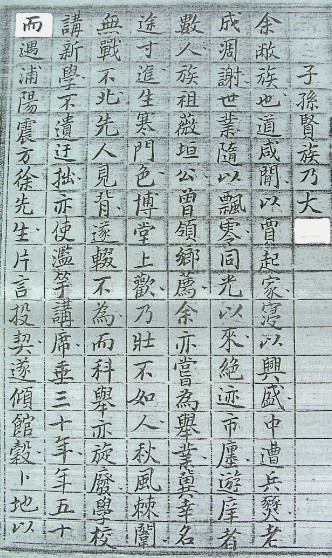 子孫賢族乃大
余敝族也道咸間以胄起家寖以興盛中遭兵燹老
成凋謝世業隨以飄零同光以來絕迹市廛遊庠者
數人族祖薇垣公曾領鄉薦余亦嘗為舉業冀幸名
途寸進生寒門色博堂上歡乃壯不如人秋風棘闈
無戰不北先人見背遂輟不為而科舉亦旋廢學校
講新學不遺迂拙亦使濫竽講席垂三十年年五十
而遇浦陽震方徐先生片言投契遂傾館穀卜地以